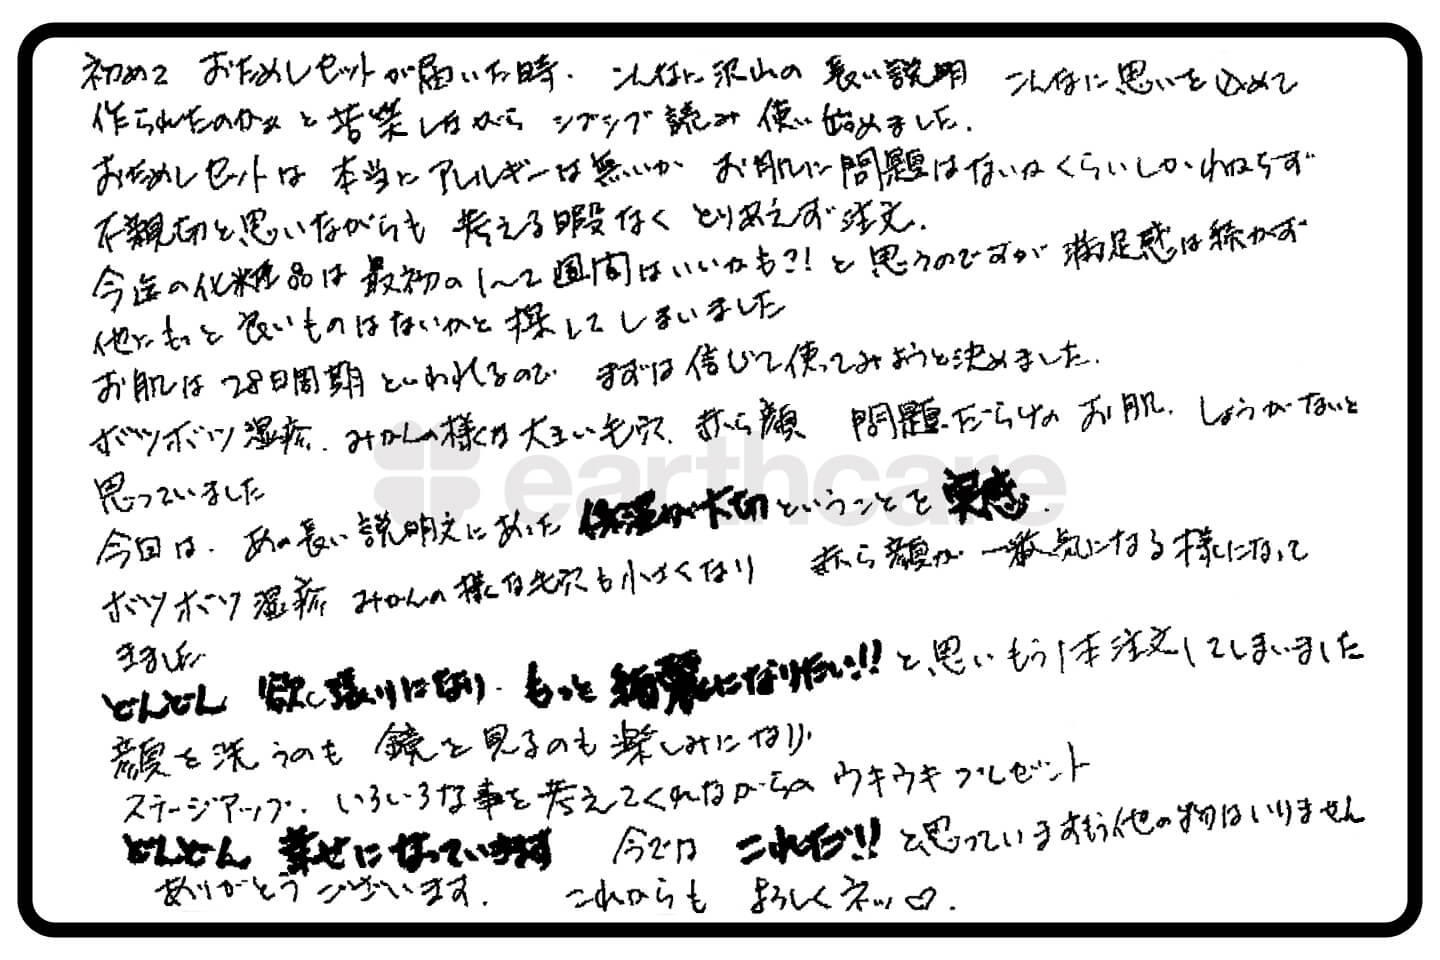 初めて おためしセットが届いた時. こんなに沢山の 長い説明 こんなに思いを込めて
作られたのかぁと苦笑しながら シブシブ読み 使い始めました.
おためしセットは 本当に アレルギーは無いか お肌に問題はないか くらいしかわからず
不親切と思いながらも 考える暇なく とりあえず注文.
今迄の化粧品は 最初の1〜2週間はいいかも?! と思うのですが 満足感は続かず
他にもっと 良いものはないかと 探してしまいました
お肌は 28日周期といわれるので まずは信じて使ってみようと決めました.
ボツボツ湿疹. みかんの様な大きい毛穴. 赤ら顔 問題だらけの お肌. しょうがないと
思っていました
earthcare
今回は. あの長い説明文にあった 保湿が大切 ということを 実感.
ボツボツ湿疹 みかんの様な毛穴も小さくなり 赤ら顔が 一散気になる様になって
きました
どんどん 欲し張りになり. もっと 綺麗になりたい!! と思い もう1本注文してしまいました
顔を洗うのも 鏡を見るのも楽しみになり
ステージアップ. いろいろな事を考えてくれながらの ウキウキ プレゼント
どんどん 幸せになっています 今では これだ!! と思っています もう他の物はいりません
ありがとうございます. これからも よろしくネッ♡.